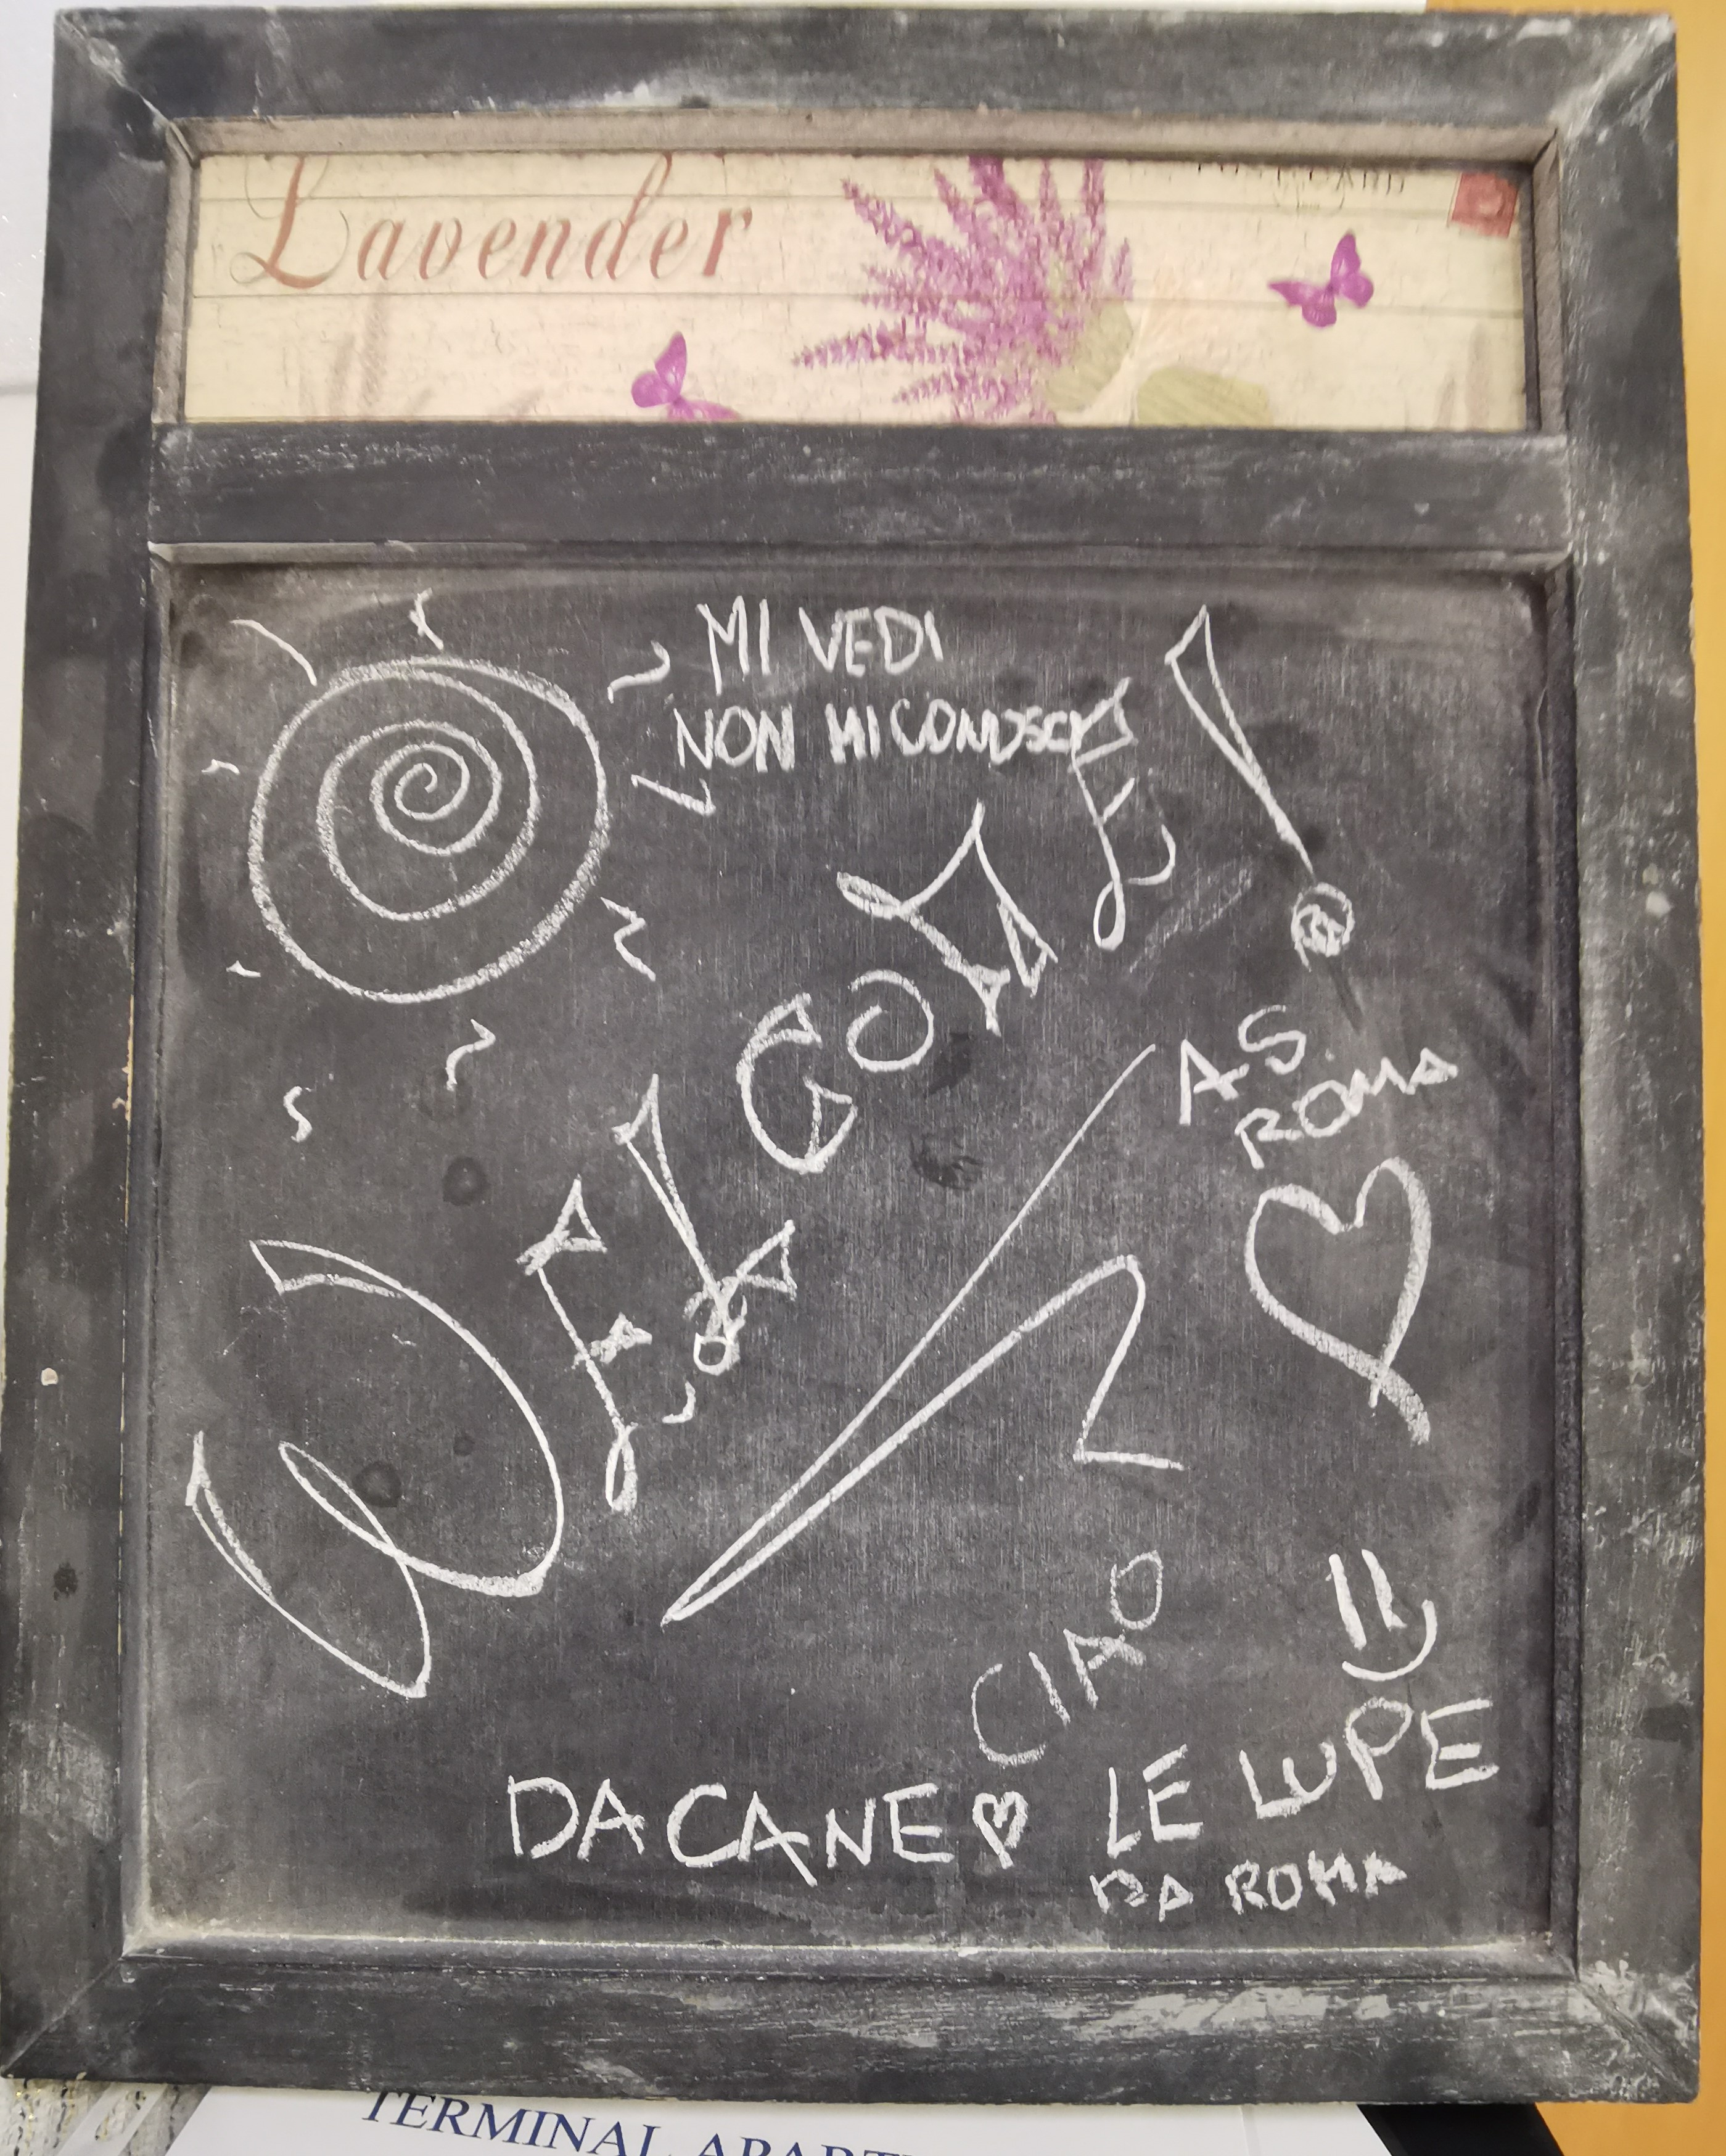 Lavender
MI VEDI
NON MI CONOSCI
WELCOME!
AS
ROMA
CIAO
DA CANE
LE LUPE
DA ROMA
TERMINAL